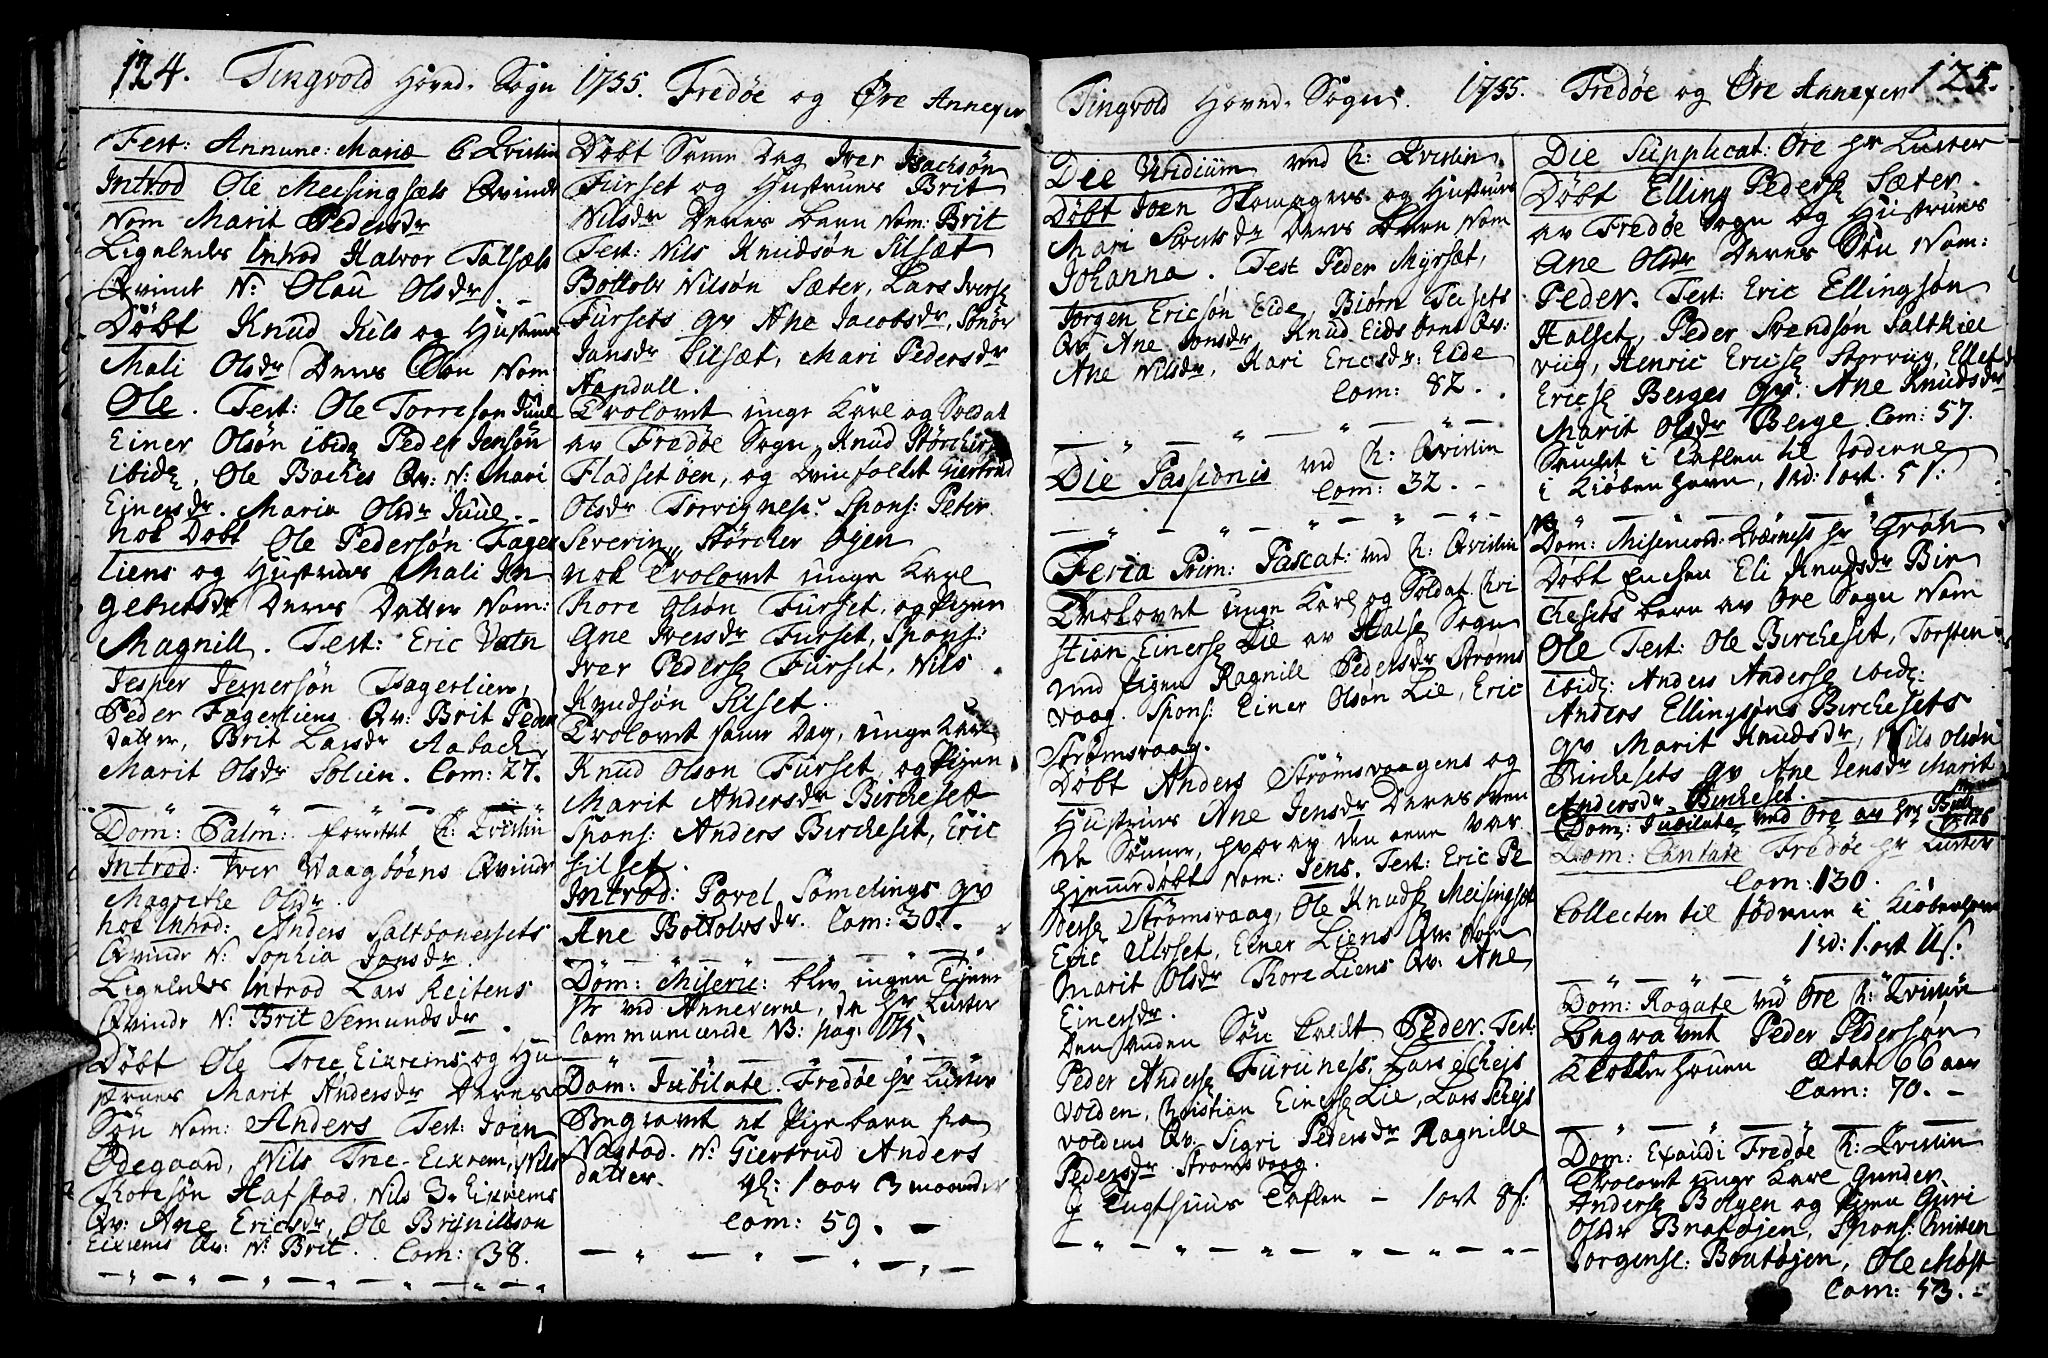 124. Tingvold Hoved-Sogn 1755. Fredøe og Øre Annexer
Fest: Annunc: Mariæ C Qvistin
Introd Ole Meisingsets Qvinde
Nom Marit Pedersdr
Ligeledes Introd Halvor Talsæts
Qvinde N: Olau Olsdr. -
Døbt Knud Juls og Hustrues
Mali Olsdr Deres Søn Nom
Ole. Test: Ole Torreson Juul
Einer Olsøn ibid Peder Jensøn
ibid, Ole Baches Qv: N: Mari
Einersdr. Marie Olsdr Juul. -
nok Døbt Ole Pedersøn Fager
liens og Hustrues Mali In
gebretsdr Deres Datter Nom:
Magnill. Test: Eric Vatn
Jesper Jespersøn Fagerlien,
Peder Fagerliens Qv: Brit Peders
datter, Brit Larsdr Aabach,
Marit Olsdr Solien. Com: 27.
Dom: Palm: forrettet C: Qvistin
Introd: Iver Waagbøens Qvinde
Magrethe Olsdr.
nok Introd: Anders Saltbonessets
Qvinde N: Sophia Jonsdr.
Ligeledes Introd Lars Reitens
Qvinde N: Brit Semundsdr.
Døbt Ole Tree Eixrems og Hu
strues Marit Andersdr Deres
Søn Nom: Anders Test: Joen
Ødegaard, Nils Tree-Eixrem, Nils
Toresøn Hafstad, Nils 3. Eixrems
Qv: Ane Ericsdr, Ole Brynillson
Eixrems Qv: N: Brit. Com: 38.
Døbt Samme Dag Iver Isachsøn
Furset og Hustrues Brit
Nilsdr Deres Barn Nom: Brit
Test: Nils Knudsøn Silsæt
Bottolv Nilsøn Sæter, Lars Iverse
Fursets qv Ane Jacobsdr, Sønov
Jonsdr Silsæt, Mari Pedersdr
Aandall.
Trolovet unge Karl og Soldat
av Fredøe Sogn Knud Størcherse
Fladsetøen, og Qvinfolket Giertrud
Olsdr Torvignes. Spons: Peter
Severin, Størcher Øyen
nok Trolovet unge Karl
Tore Olsøn Furset, og Pigen
Ane Iversdr Furset, Spons:
Iver Pederse Furset, Nils
Knudsøn Silset.
Trolovet samme Dag, unge Karl
Knud Olson Furset og Pigen
Marit Andersdr Bircheset
Spons: Anders Bircheset, Eric
Silset.
Introd: Povel Sømelings qv
Ane Bottolvsdr. Com: 30. -
Dom: Miseric: blev ingen Tiene
ste ved Annexerne, da hr Lister
Communicerede NB: pag: 175.
Dom: Jubilate. Fredøe hr Lister
Begravet et Pigebarn fra
Nastad. N: Giertrud Anders
datter. gl: 1 aar 3 maaneder
Com: 59. -
Tingvold Hoved-Sogn. 1755. Fredøe og Øre Annexer 125.
Die Viridium ved C: Qvistin.
Døbt Joen Skomagers og Hustrues
Mari Siversdr Deres Barn Nom
Johanna. Test Peder Myrsæt,
Jørgen Ericsøn Eide, Biørn Teisets
Qv Ane Jonsdr, Knud Eids Ørnt Qv:
Ane Nilsdr, Kari Ericsdr: Eide
Com: 82.
Die Passionis ved C: Qvistin
Com: 32. -
Feria Prim: Pascat: ved C: Qvistin
Trolovet unge Karl og Soldat Chri
stian Einerse Lie av Halse Sogn
med Pigen Ragnill Pedersdr Strøms
vaag. Spons: Einer Olson Lie, Eric
Strømsvaag.
Døbt Anders Strømsvaagens og
Hustrues Ane Jensdr Deres tven
de Sønner, hvorav den eene var
hjemmedøbt Nom: Jens. Test: Eric Pe
derse Strømsvaag, Ole Knudse Meisingset
Eric Ulvset, Einer Liens Qv: Nom
Marit Olsdr Tore Liens Qv: Ane
Einersdr.
Den anden Søn kaldt Peder. Test:
Peder Anderse Furunes, Lars Schejs
volden, Christian Einerse Lie, Lars Schejs
voldens Qv. Sigri Pedersdr Ragnille
Pedersdr Strømsvaag.
I Tugthuus Taflen - 1 ort 8 s:
Die Supplicat: Øre hr Lister
Døbt Elling Pederse Sæter
av Fredøe Sogn og Hustrues
Ane Olsdr Deres Søn Nom:
Peder. Test: Eric Ellingsøn
Halset, Peder Svendsøn Saltkiel
viig, Henric Ericse Storviig, Ellef
Ericse Berges qv. Ane Knudsdr
Marit Olsdr Berge. Com: 57.
Samlet i Taflen til Jøderne
i Kiøbenhavn, 1 rd: 1 ort. 5 s:
Dom: Misericord. Qværness hr Grøn
Døbt Enchen Eli Knudsdr Bir
chesets barn av Øre Sogn Nom
Ole Test: Ole Bircheset, Torsten
ibid: Anders Anderse ibid:
Anders Ellingsøns Birchesets
qv Marit Knudsdr, Nils Olsøn
Birchesets qv Ane Jensdr Marit
Andersdr Bircheset.
Dom: Jubilate ved Øre av hr
Dom: Cantate Fredøe hr Lister
Com: 130.
Collecten til Jøderne i Kiøbenhavn
1 rd: 1 ort 11 s:
Dom: Rogate ved Øre C: Qvistin
Begravet Peder Pedersøn
Klokkerhouen Ætat 66 aar
Com: 70. -
Dom: Exaudi Fredøe C: Qvistin
Trolovet unge Karl Gunder
Anderse Bolgen og Pigen Guri
Olsdr Bratøjen, Spons: Christen
Jorgense: Bratøjen, Ole Møst
Com: 53. -